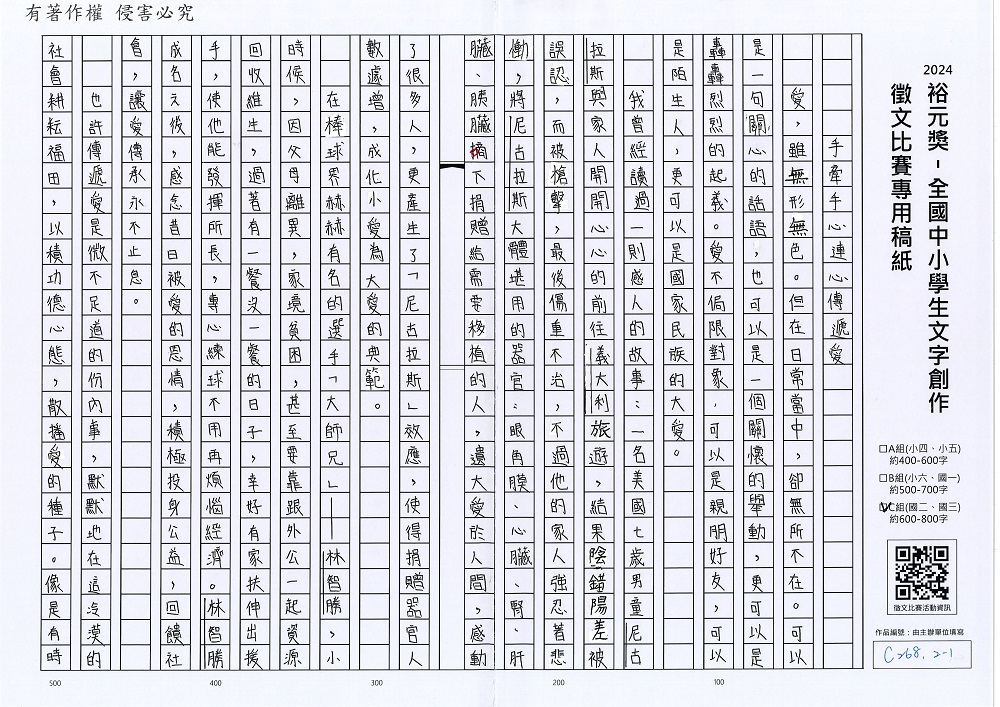 有著作權 侵害必究
2024
裕元獎-全國中小學生文字創作
徵文比賽專用稿紙
□A組(小四、小五)
約400-600字
□B組(小六、國一)
約500-700字
□C組(國二、國三)
約600-800字
徵文比賽活動資訊
作品編號：由主辦單位填寫
C268, 2-1
手牽手心連心傳遞愛
愛，雖無形無色。但在日常當中，卻無所不在。可以
是一句關心的話語，也可以是一個關懷的舉動，更可以是
轟轟烈烈的起義。愛不侷限對象，可以是親朋好友，可以
是陌生人，更可以是國家民族的大愛。
我曾經讀過一則感人的故事：一名美國七歲男童尼古
拉斯與家人開開心心的前往義大利旅遊，結果陰錯陽差被
誤認，而被槍擊，最後傷重不治，不過他的家人強忍著悲
慟，將尼古拉斯大體堪用的器官：眼角膜、心臟、腎、肝
臟、胰臟摘下捐贈給需要移植的人，遺大愛於人間，感動
了很多人，更產生了「尼古拉斯」效應，使得捐贈器官人
數遽增，成化小愛為大愛的典範。
在棒球界赫赫有名的選手「大師兄」——林智勝，小
時候，因父母離異，家境貧困，甚至要靠跟外公一起資源
回收維生，過著有一餐沒一餐的日子，幸好有家扶伸出援
手，使他能發揮所長，專心練球不用再煩惱經濟。林智勝
成名之後，感念昔日被愛的恩情，積極投身公益，回饋社
會，讓愛傳承永不止息。
也許傳遞愛是微不足道的份內事，默默地在這沒漠的
社會耕耘福田，以積功德心態，散播愛的種子。像是有時
100
200
300
400
500